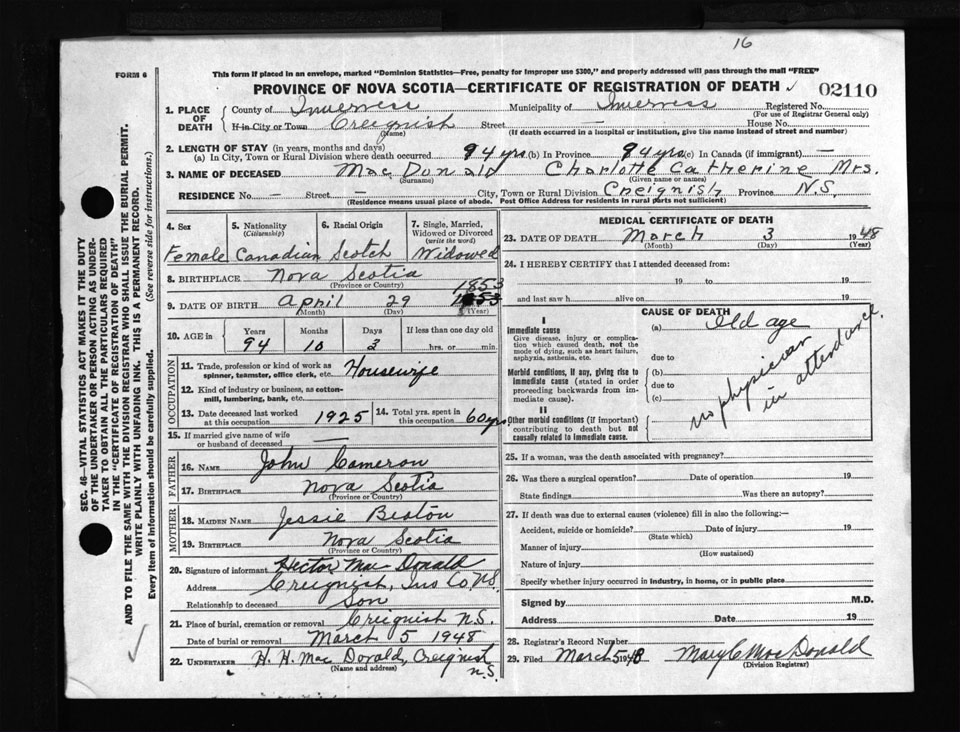 16
FORM 6
This form if placed in an envelope, marked "Dominion Statistics—Free, penalty for improper use $300," and properly addressed will pass through the mail "FREE"
PROVINCE OF NOVA SCOTIA—CERTIFICATE OF REGISTRATION OF DEATH 02110
1. PLACE OF DEATH County of Inverness Municipality of Inverness Registered No.
(For use of Registrar General only)
If in City or Town Creignish Street — House No.
(Name) (If death occurred in a hospital or institution, give the name instead of street and number)
2. LENGTH OF STAY (in years, months and days)
(a) In City, Town or Rural Division where death occurred 94 yrs (b) In Province 94 yrs (c) In Canada (if immigrant) —
3. NAME OF DECEASED Mac Donald Charlotte Catherine Mrs.
(Surname) (Given name or names)
RESIDENCE No. — Street — City, Town or Rural Division Creignish Province N.S.
(Residence means usual place of abode. Post Office Address for residents in rural parts not sufficient)
4. Sex 5. Nationality 6. Racial Origin 7. Single, Married, Widowed or Divorced
(Citizenship) (write the word)
Female Canadian Scotch Widowed
8. BIRTHPLACE Nova Scotia
(Province or Country)
1853
9. DATE OF BIRTH April 29
(Month) (Day) (Year)
10. AGE in Years Months Days If less than one day old
94 10 3 hrs. or min.
OCCUPATION
11. Trade, profession or kind of work as spinner, teamster, office clerk, etc. Housewife
12. Kind of industry or business, as cotton-mill, lumbering, bank, etc.
13. Date deceased last worked at this occupation 1925 14. Total yrs. spent in this occupation 60 yrs
15. If married give name of wife or husband of deceased —
FATHER
16. NAME John Cameron
17. BIRTHPLACE Nova Scotia
(Province or Country)
MOTHER
18. MAIDEN NAME Jessie Beaton
19. BIRTHPLACE Nova Scotia
(Province or Country)
20. Signature of informant Hector Mac Donald
Address Creignish, Inv Co. N.S.
Relationship to deceased Son
21. Place of burial, cremation or removal Creignish N.S.
Date of burial or removal March 5 1948
22. UNDERTAKER H. H. Mac Donald, Creignish N.S.
(Name and address)
MEDICAL CERTIFICATE OF DEATH
23. DATE OF DEATH March 3 1948
(Month) (Day) (Year)
24. I HEREBY CERTIFY that I attended deceased from:
19 to 19
and last saw h alive on 19
CAUSE OF DEATH
I
Immediate cause (a) Old age
Give disease, injury or complication which caused death, not the mode of dying, such as heart failure, asphyxia, asthenia, etc.
due to
Morbid conditions, if any, giving rise to immediate cause (stated in order proceeding backwards from immediate cause).
(b)
due to
(c)
II
Other morbid conditions (if important) contributing to death but not causally related to immediate cause.
no physician in attendance.
25. If a woman, was the death associated with pregnancy?
26. Was there a surgical operation? Date of operation 19
State findings Was there an autopsy?
27. If death was due to external causes (violence) fill in also the following:—
Accident, suicide or homicide? Date of injury 19
(State which)
Manner of injury
(How sustained)
Nature of injury
Specify whether injury occurred in industry, in home, or in public place
Signed by M.D.
Address Date 19
28. Registrar's Record Number
29. Filed March 5 1948 Mary C Mac Donald
(Division Registrar)
SEC. 46—VITAL STATISTICS ACT MAKES IT THE DUTY
OF THE UNDERTAKER OR PERSON ACTING AS UNDERTAKER TO OBTAIN ALL THE PARTICULARS REQUIRED
IN THE "CERTIFICATE OF REGISTRATION OF DEATH"
AND TO FILE THE SAME WITH THE DIVISION REGISTRAR WHO SHALL ISSUE THE BURIAL PERMIT.
WRITE PLAINLY WITH UNFADING INK. THIS IS A PERMANENT RECORD.
Every item of information should be carefully supplied. (See reverse side for instructions.)